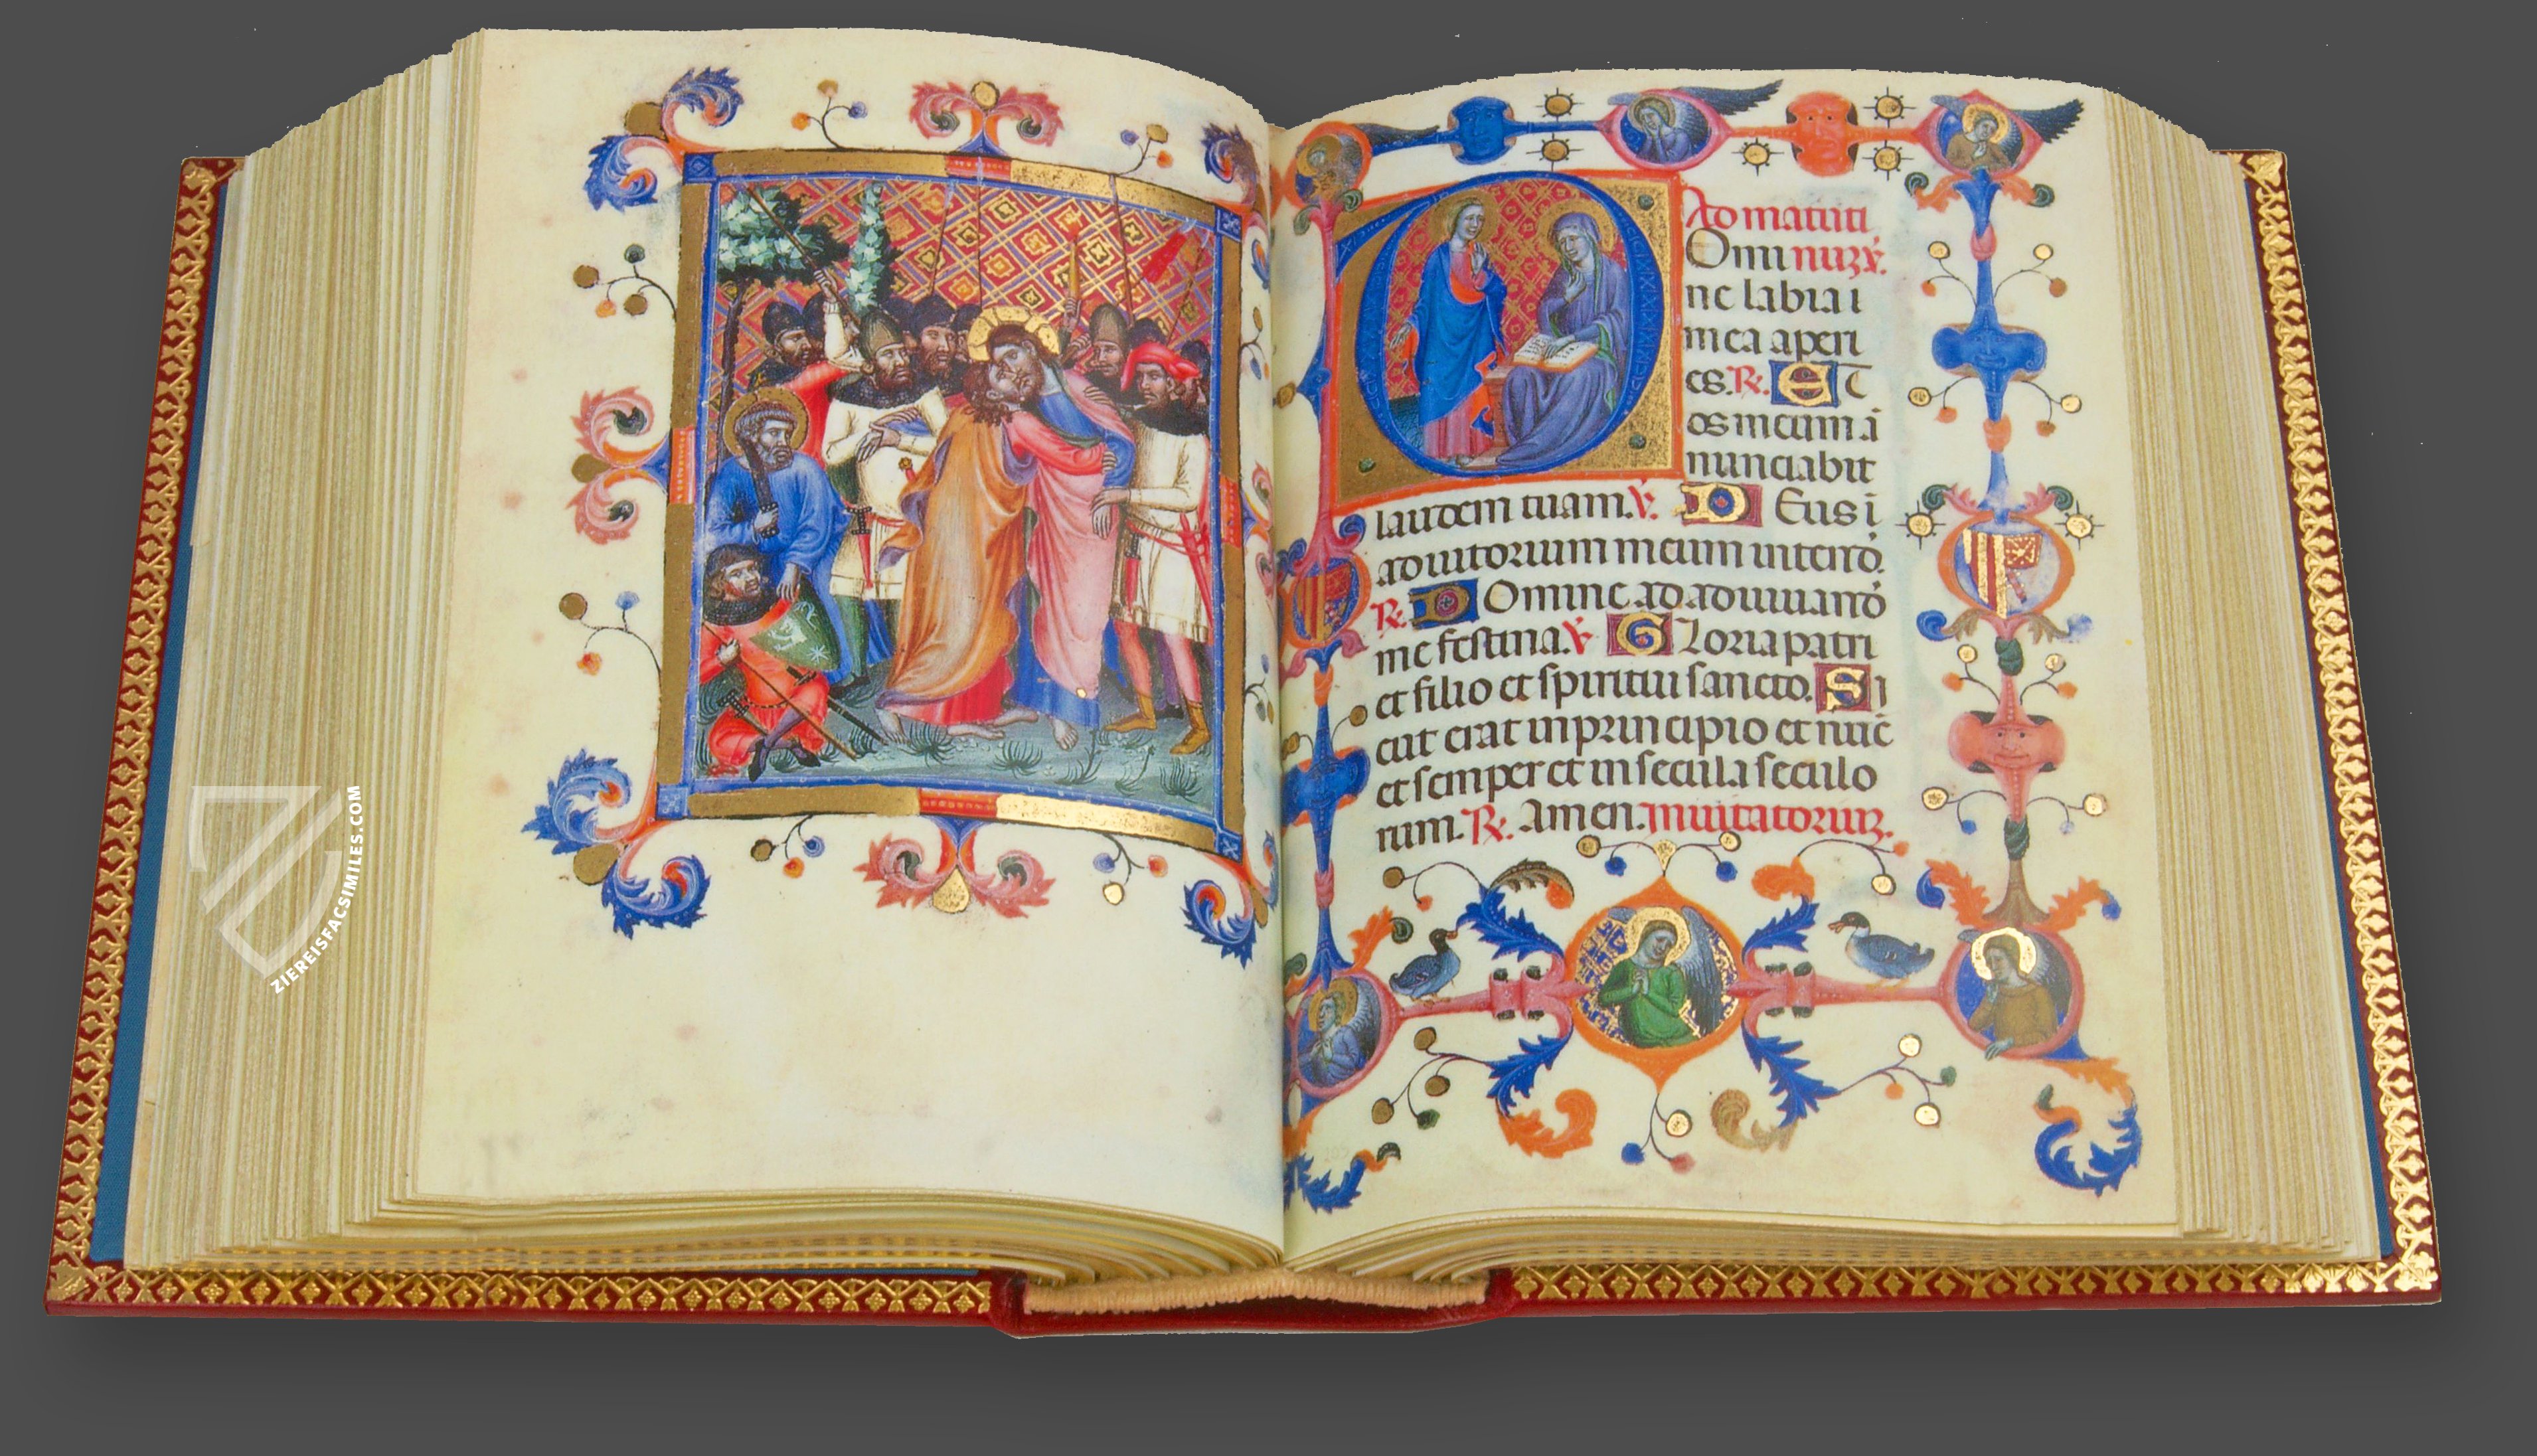 Ad matuti
Omi nuz. ℣.
ne labia i
mea aperi
es. ℟. Et
os meum a
nunciabit
laudem tuam. ℣. Deus i
adiutorium meum intend.
℟. Domine ad adiuuand
me festina. ℣. Gloria patri
et filio et spiritui sancto. Si
cut erat in principio et nūc
et semper et in secula seculo
rum. ℟. Amen. Inuitatoriuz.
ZIEREISFACSIMILES.COM